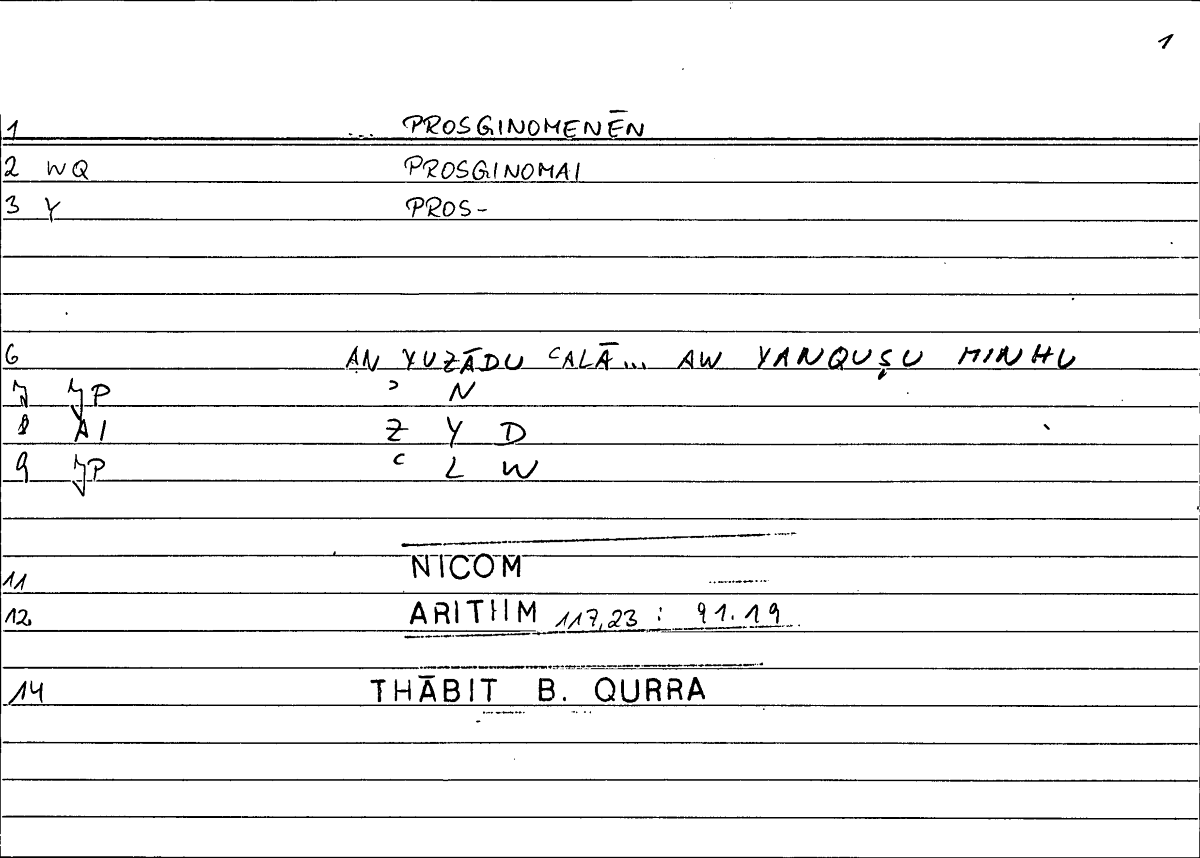 1
1 ... PROSGINOMENĒN
2 WQ PROSGINOMAI
3 Y PROS-
6 AN YUZĀDU ᶜALĀ... AW YANQUṢU MINHU
7 JP ʾ N
8 AI Z Y D
9 JP ᶜ L W
11 NICOM
12 ARITHM 117,23 : 91.19
14 THĀBIT B. QURRA